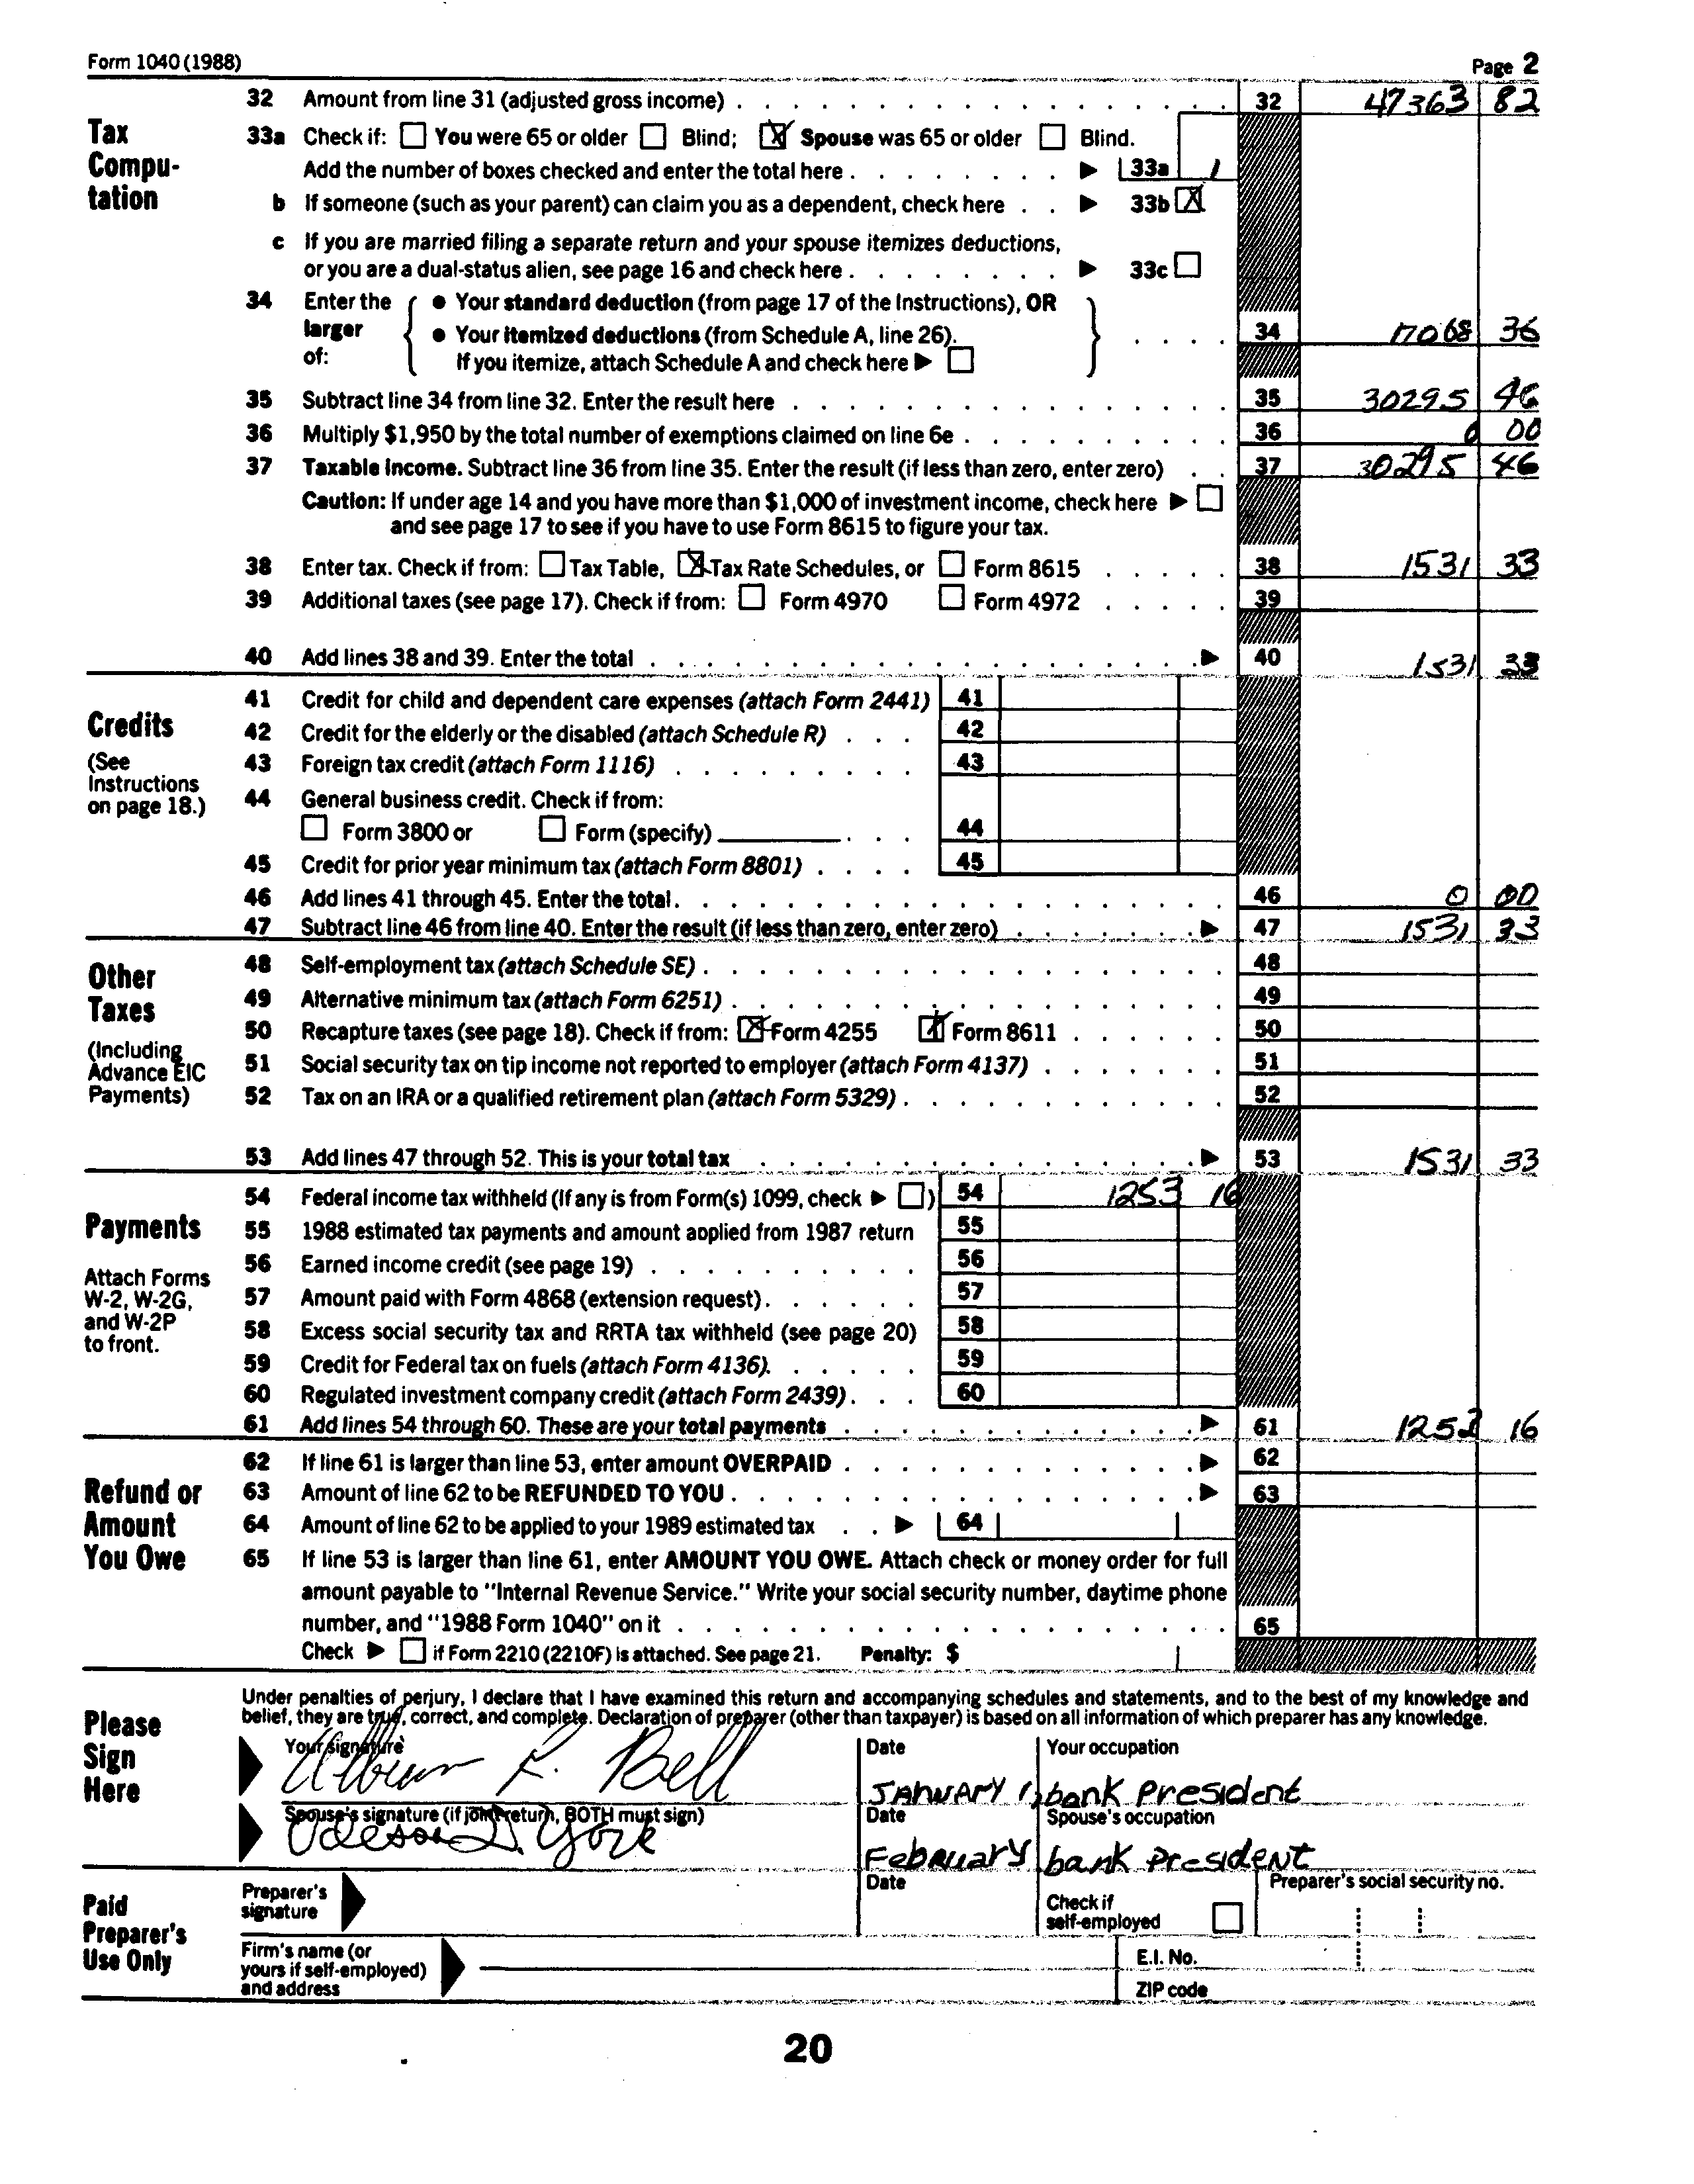 Form 1040 (1988) Page 2
Tax Computation
32 Amount from line 31 (adjusted gross income) 32 47363 82
33a Check if: ☐ You were 65 or older ☐ Blind; ☒ Spouse was 65 or older ☐ Blind.
Add the number of boxes checked and enter the total here ▶ 33a 1
b If someone (such as your parent) can claim you as a dependent, check here ▶ 33b ☒
c If you are married filing a separate return and your spouse itemizes deductions,
or you are a dual-status alien, see page 16 and check here ▶ 33c ☐
34 Enter the larger of: { ● Your standard deduction (from page 17 of the Instructions), OR
● Your itemized deductions (from Schedule A, line 26). } 34 17068 36
If you itemize, attach Schedule A and check here ▶ ☐
35 Subtract line 34 from line 32. Enter the result here 35 30295 46
36 Multiply $1,950 by the total number of exemptions claimed on line 6e 36 0 00
37 Taxable income. Subtract line 36 from line 35. Enter the result (if less than zero, enter zero) 37 30295 46
Caution: If under age 14 and you have more than $1,000 of investment income, check here ▶ ☐
and see page 17 to see if you have to use Form 8615 to figure your tax.
38 Enter tax. Check if from: ☐ Tax Table, ☒ Tax Rate Schedules, or ☐ Form 8615 38 1531 33
39 Additional taxes (see page 17). Check if from: ☐ Form 4970 ☐ Form 4972 39
40 Add lines 38 and 39. Enter the total ▶ 40 1531 33
Credits
(See Instructions on page 18.)
41 Credit for child and dependent care expenses (attach Form 2441) 41
42 Credit for the elderly or the disabled (attach Schedule R) 42
43 Foreign tax credit (attach Form 1116) 43
44 General business credit. Check if from:
☐ Form 3800 or ☐ Form (specify) 44
45 Credit for prior year minimum tax (attach Form 8801) 45
46 Add lines 41 through 45. Enter the total 46 0 00
47 Subtract line 46 from line 40. Enter the result (if less than zero, enter zero) ▶ 47 1531 33
Other Taxes
(Including Advance EIC Payments)
48 Self-employment tax (attach Schedule SE) 48
49 Alternative minimum tax (attach Form 6251) 49
50 Recapture taxes (see page 18). Check if from: ☒ Form 4255 ☒ Form 8611 50
51 Social security tax on tip income not reported to employer (attach Form 4137) 51
52 Tax on an IRA or a qualified retirement plan (attach Form 5329) 52
53 Add lines 47 through 52. This is your total tax ▶ 53 1531 33
Payments
Attach Forms W-2, W-2G, and W-2P to front.
54 Federal income tax withheld (If any is from Form(s) 1099, check ▶ ☐) 54 1253 16
55 1988 estimated tax payments and amount applied from 1987 return 55
56 Earned income credit (see page 19) 56
57 Amount paid with Form 4868 (extension request) 57
58 Excess social security tax and RRTA tax withheld (see page 20) 58
59 Credit for Federal tax on fuels (attach Form 4136) 59
60 Regulated investment company credit (attach Form 2439) 60
61 Add lines 54 through 60. These are your total payments ▶ 61 1253 16
Refund or Amount You Owe
62 If line 61 is larger than line 53, enter amount OVERPAID ▶ 62
63 Amount of line 62 to be REFUNDED TO YOU ▶ 63
64 Amount of line 62 to be applied to your 1989 estimated tax ▶ 64
65 If line 53 is larger than line 61, enter AMOUNT YOU OWE. Attach check or money order for full
amount payable to "Internal Revenue Service." Write your social security number, daytime phone
number, and "1988 Form 1040" on it 65
Check ▶ ☐ if Form 2210 (2210F) is attached. See page 21. Penalty: $
Please Sign Here
Under penalties of perjury, I declare that I have examined this return and accompanying schedules and statements, and to the best of my knowledge and
belief, they are true, correct, and complete. Declaration of preparer (other than taxpayer) is based on all information of which preparer has any knowledge.
Your signature Date Your occupation
R. Bell JANUARY 1, bank President
Spouse's signature (if joint return, BOTH must sign) Date Spouse's occupation
Odessa D. York February bank President
Paid Preparer's Use Only
Preparer's signature Date Check if self-employed ☐ Preparer's social security no.
Firm's name (or yours if self-employed) and address E.I. No.
ZIP code
20